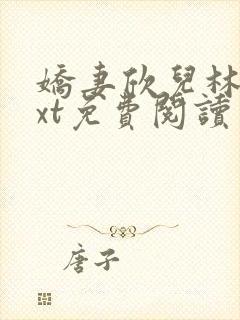 嬌妻欣兒林
xt免費閱讀
唐子